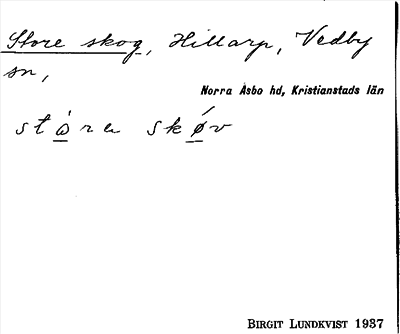 Store skog, Hillarp, Vedby
sn,
Norra Åsbo hd, Kristianstads län
stòra skǿv
BIRGIT LUNDKVIST 1937